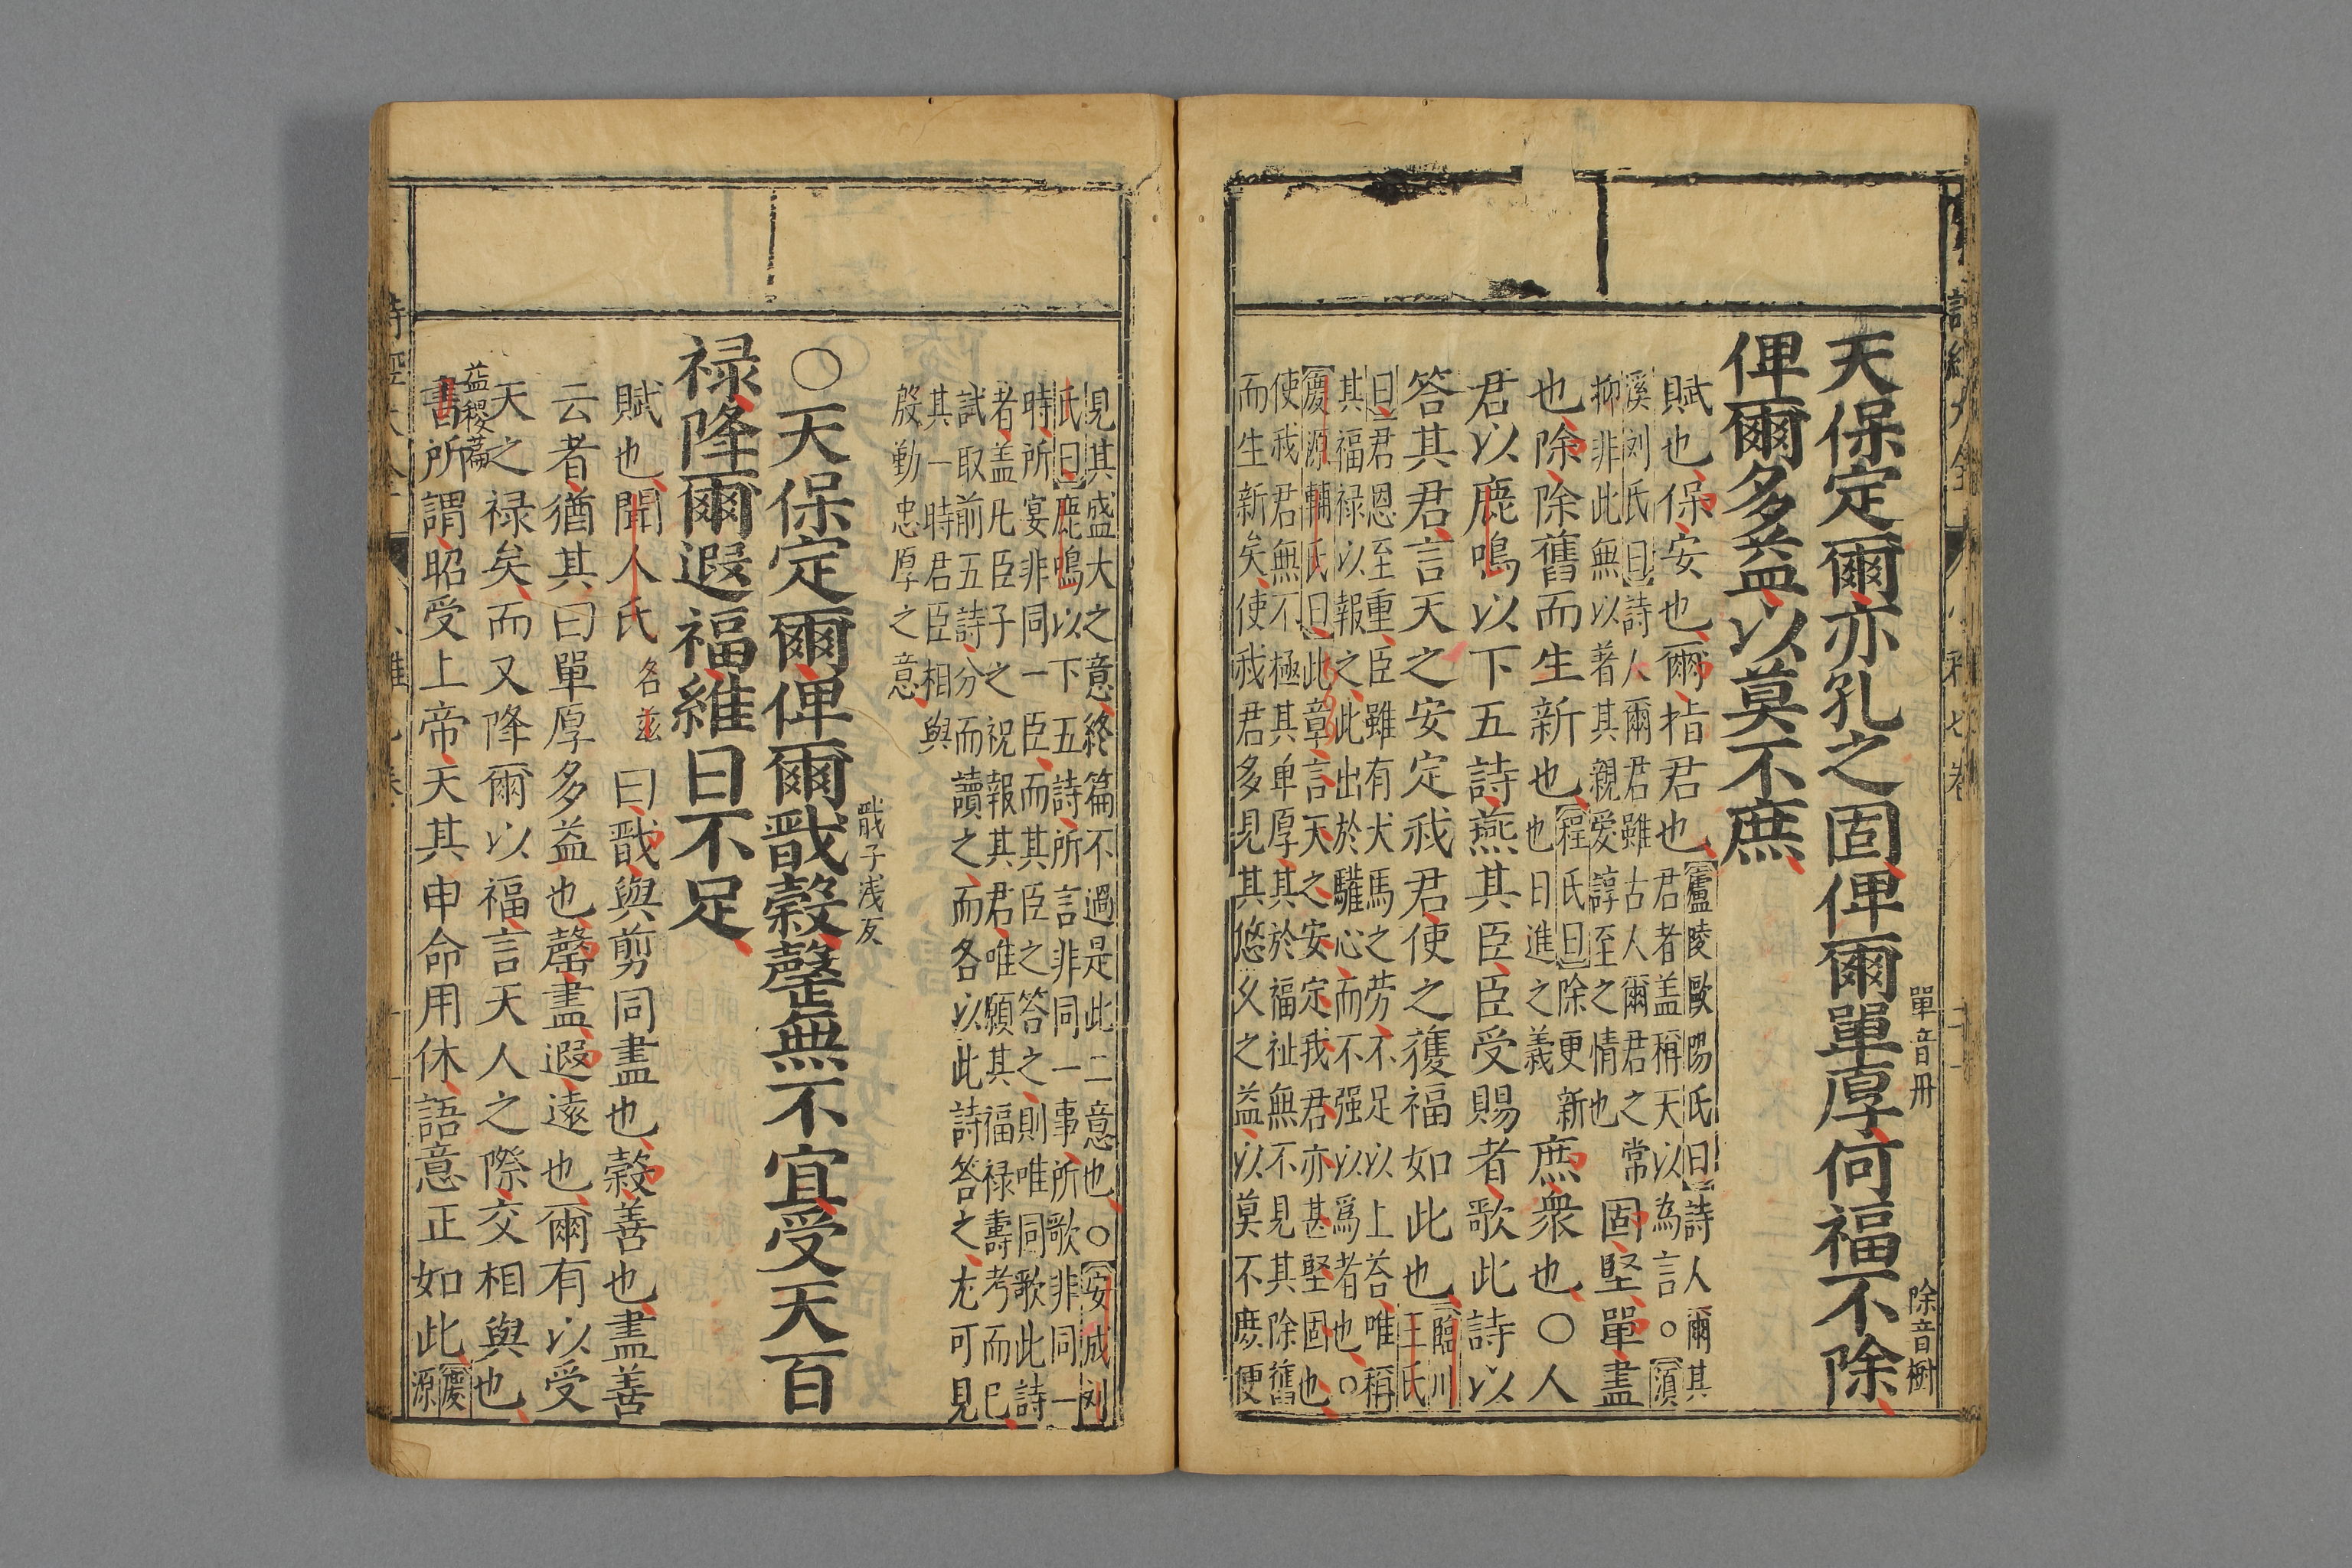 天保定爾亦孔之固俾爾單厚何福不除
單音冊
除音樹
俾爾多益以莫不庶
賦也保安也爾指君也
廬陵歐陽氏曰詩人爾其
君者盖稱天以為言○濮
溪刘氏曰詩人爾君雖古人爾君之常
抑非此無以著其親愛諄至之情也
固堅單盡
也除除舊而生新也
程氏曰除更新
也日進之義
庶衆也○人
君以鹿鳴以下五詩燕其臣臣受賜者歌此詩以
答其君言天之安定我君使之獲福如此也
臨川
王氏
曰君恩至重臣雖有犬馬之劳不足以上荅唯稱
其福禄以報之此出於驩心而不强以爲者也○
慶源輔氏曰此章言天之安定我君亦甚堅固也
使我君無不極其单厚其於福祉無不見其除舊
而生新矣使我君多見其悠乆之益以莫不庶便
見其盛大之意終篇不過是此二意也○安成刘
氏曰鹿鳴以下五詩所言非同一事所歌非同一
時所宴非同一臣而其臣之答之則唯同歌此詩
者盖凡臣子之祝報其君唯願其福禄壽考而已
試取前五詩分而讀之而各以此詩答之尤可見
其一時君臣相與
殷勤忠厚之意
○天保定爾俾爾戩穀罄無不宜受天百
戩子浅反
禄降爾遐福維日不足
賦也聞人氏
名兹
曰戩與剪同盡也穀善也盡善
云者猶其曰單厚多益也罄盡遐遠也爾有以受
天之禄矣而又降爾以福言天人之際交相與也
書
益稷篇
所謂昭受上帝天其申命用休語意正如此
慶
源